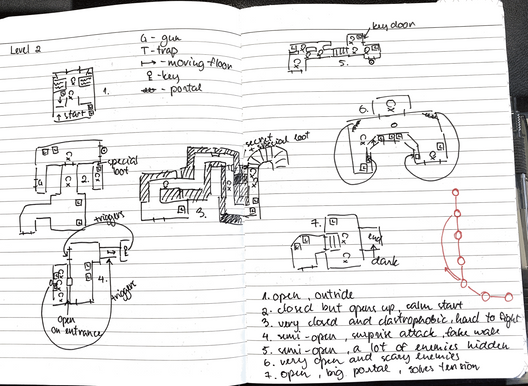 Level 2
G - gun
T - trap
- moving floor
- key
- portal
1.
start
special
loot
2.
3.
secret
+ special loot
triggers
4.
triggers
open
on entrance
key door
5.
6.
7.
end
dark
1. open, outside
2. closed but opens up, calm start
3. very closed and clastrophobic, hard to fight
4. semi-open, surprise attack, fake wake
5. semi-open, a lot of enemies hidden
6. very open and scary enemies
7. open, big portal, solves tension